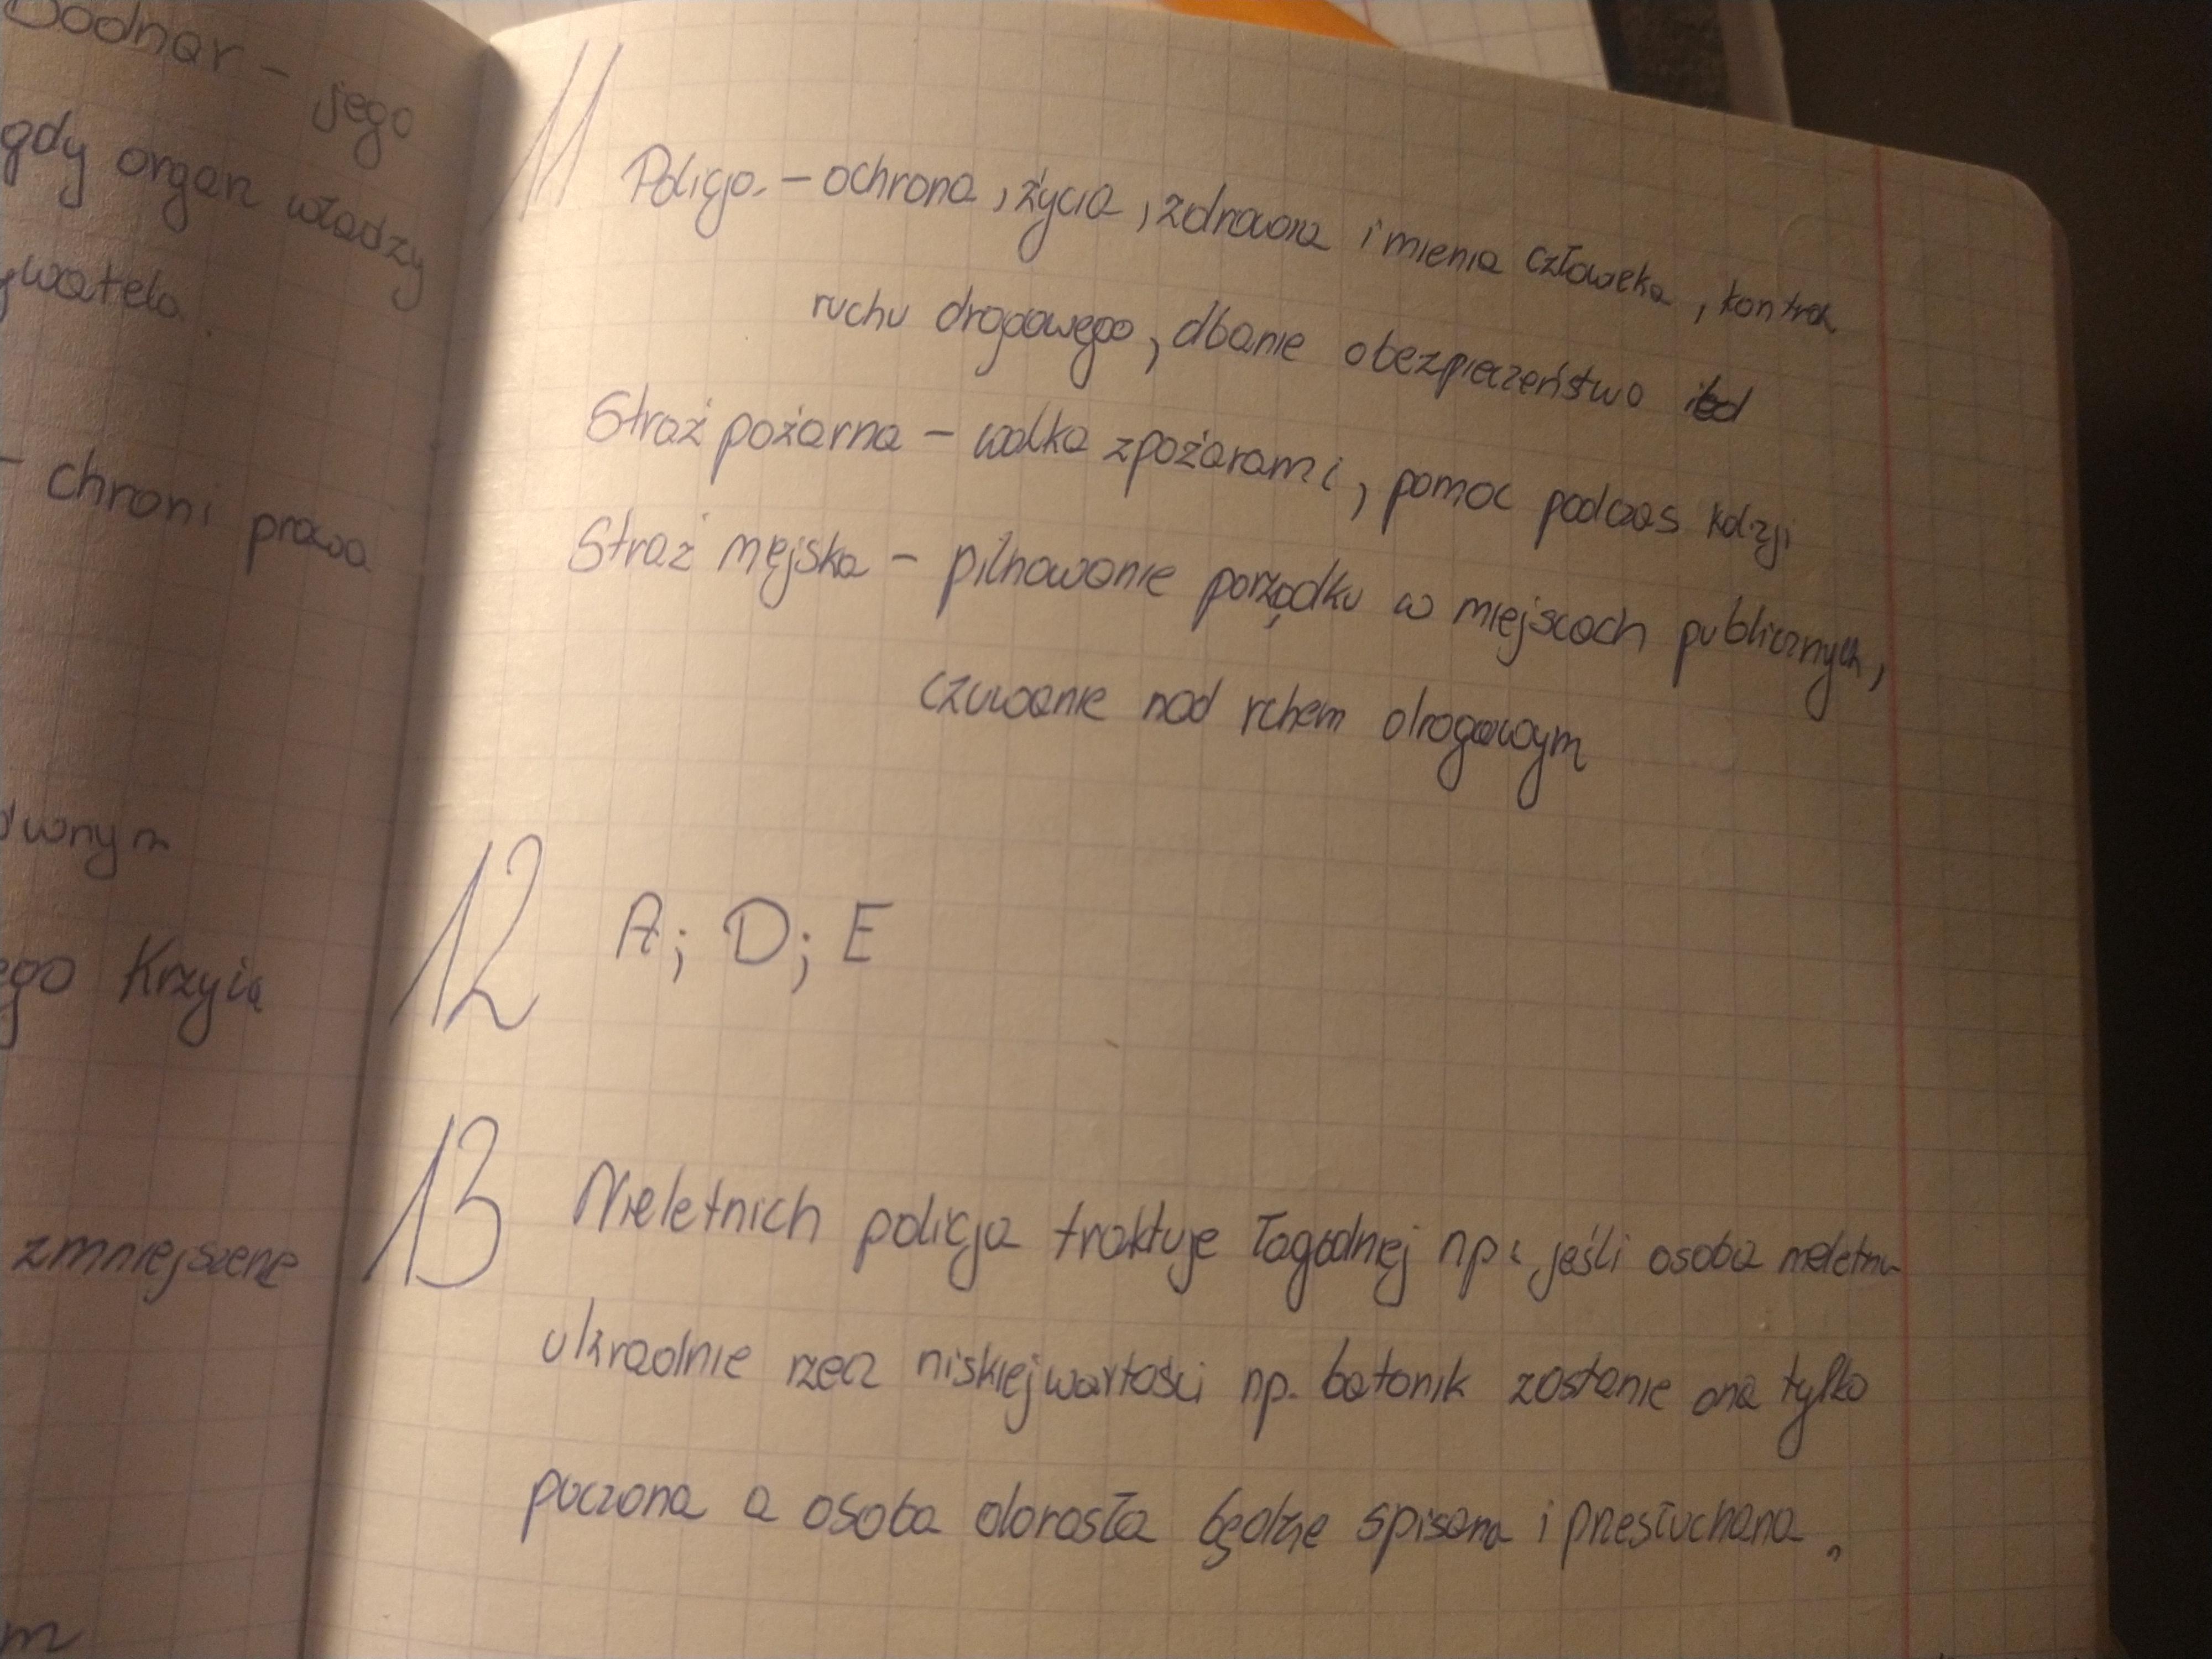 Bodnar - jego
gdy organ władzy
ywatela.
- chroni prawa
ownym
ego Krzyża
zmniejszenie
m
11 Policja - ochrona, życia, zdrowia i mienia człowieka, kontrol
ruchu drogowego, dbanie o bezpieczeństwo
Straż pożarna - walka z pożarami, pomoc podczas kolizji
Straż miejska - pilnowanie porządku w miejscach publicznych,
czuwanie nad rchem drogowym
12 A; D; E
13 Nieletnich policja traktuje łagodniej np. jeśli osoba nieletnia
ukradnie rzecz niskiej wartości np. batonik zostanie ona tylko
puczona a osoba dorosła będzie spisana i przesłuchana.